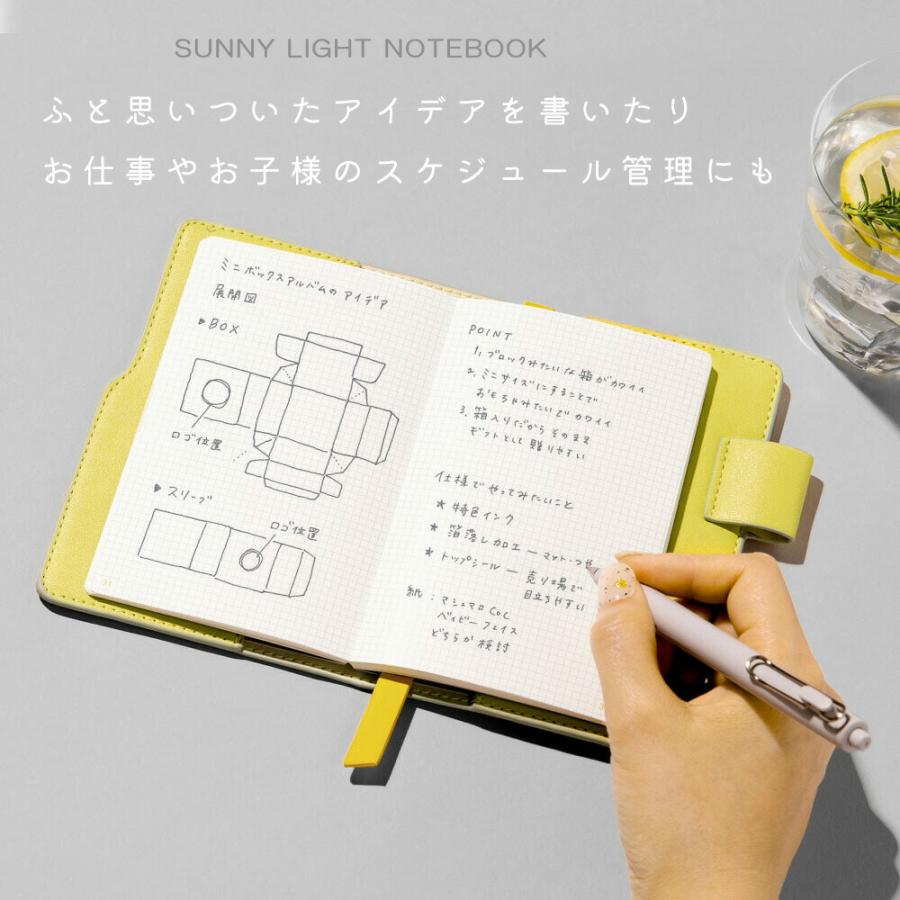 SUNNY LIGHT NOTEBOOK
ふと思いついたアイデアを書いたり
お仕事やお子様のスケジュール管理にも
ミニボックスアルバムのアイデア
展開図
▶BOX
ロゴ位置
▶スリーブ
ロゴ位置
31
POINT
1, ブロックみたいな箱がカワイイ
2. ミニサイズにすることで
おもちゃみたいでカワイイ
3. 箱入りだからそのまま
ギフトとして贈りやすい
仕様でやってみたいこと
★ 特色インク
★ 箔落し加工 ー マット・つや
★ トップシール ー 売り場で
目立ちやすい
紙 : マシュマロCoC
ベイビーフェイス
どちらか検討